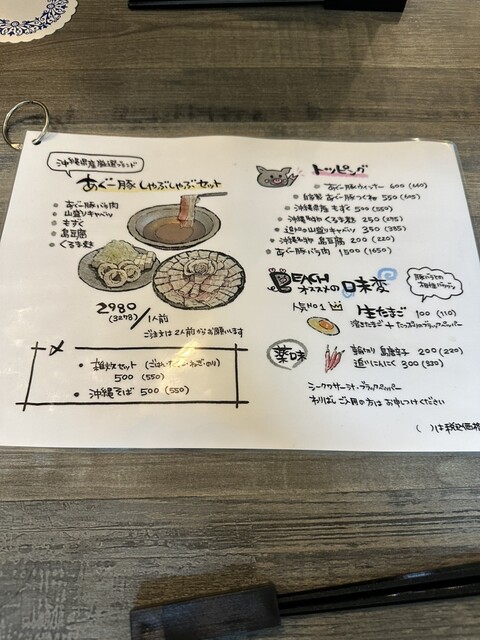 沖縄県産厳選ブランド
あぐー豚しゃぶしゃぶセット
あぐー豚バラ肉
山盛りキャベツ
もずく
島豆腐
くるま麩
2980
(3278)/1人前
ご注文は2人前からお願います
〆
雑炊セット(ごはん・たまご・ねぎ・のり)
500 (550)
沖縄そば 500 (550)
トッピング
あぐー豚ウィンナー 600 (660)
自家製 あぐー豚つくね 550 (605)
沖縄県産 もずく 500 (550)
沖縄名物 くるま麩 250 (275)
追加の山盛りキャベツ 350 (385)
沖縄名物 島豆腐 200 (220)
あぐー豚バラ肉 1500 (1650)
BEACH
オススメの
味変
豚バラとの
相性バツグン
人気No1
生たまご 100 (110)
溶きたまご + たっぷりのブラックペッパー
薬味
輪切り 島唐辛子 200 (220)
追いにんにく 300 (330)
シークワーサー汁、ブラックペッパー
ご入用の方は お申しつけください
( )は税込価格